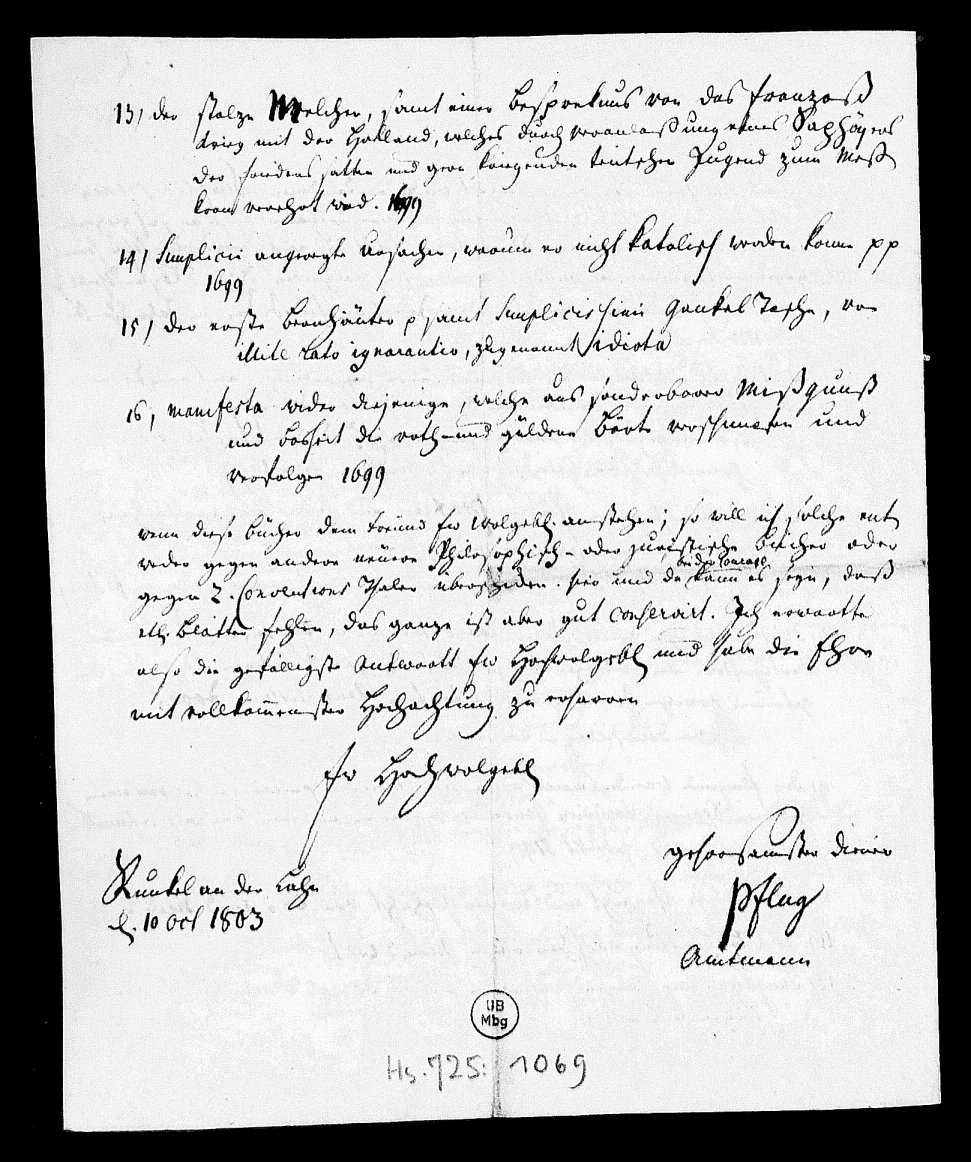 13, der stolze Melcher, samt einer Bespreknus von das Französ
Krieg mit der Holland, welches durch veranlassung eines Saphoyers
der friedens satten und gern kriegenden teutschen Jugend zum Meß
kram verehrt wird. 1699
14, Simplicii angeregte Ursachen, warum er nicht Katolisch werden könne pp
1699
15, der erste Beernhäuter p samt Simplicissimi Gaukel Tasche, von
illite rato ignorantio, zugenannt idiota
16, Manifesta wider diejenige, welche aus sonderbarer Mißgunst
und bosheit die roth- und güldene Bärte verschimpfen und
verfolgen 1699
wenn diese Bücher dem Freund Ew Wolgebl. anstehen; so will ich solche ent
weder gegen andere neuere Philosophisch- oder juristische Bücher oder
bei der Courage
gegen 2. Conventions Thaler überschiken. hier und da kann es seyn, daß
etl. Blätter fehlen, das ganze ist aber gut conservirt. Ich erwartte
also die gefälligste Antwortt Ew Hochwolgebl und habe die Ehre
mit vollkommenster Hochachtung zu erharren
Ew Hochwolgebl
gehorsamster diener
Pflug
Amtmann
Runkel an der Lahn
d. 10 oct 1803
UB
Mbg
Hs. 725: 1069